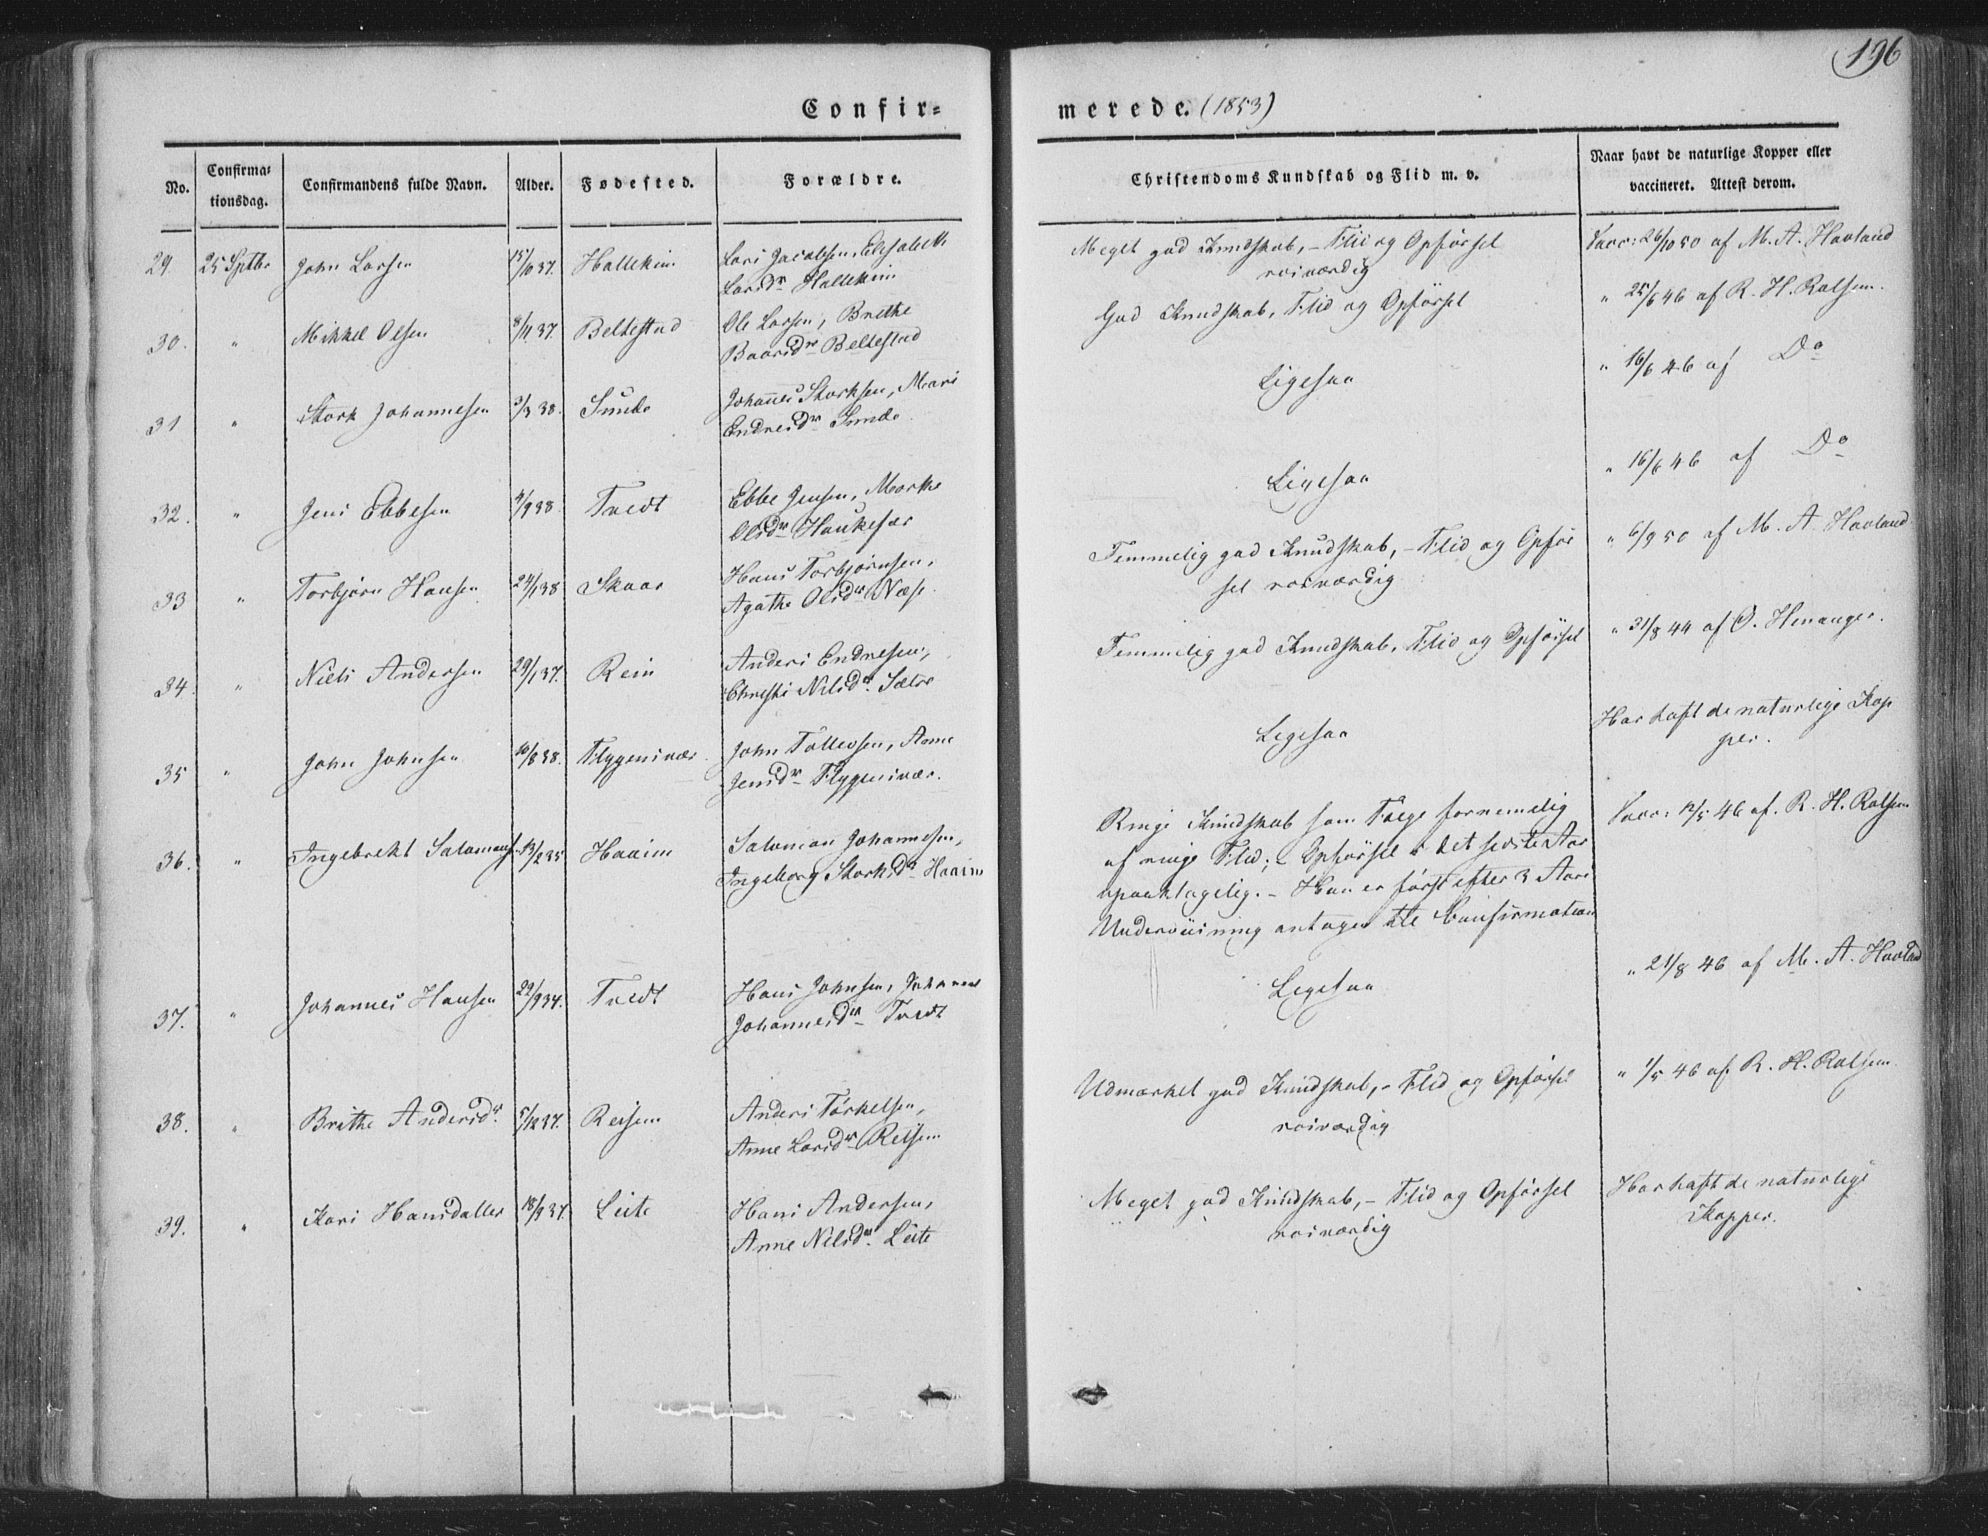 196
Confir-
merede. (1853)
No.
Confirma-
tionsdag.
Confirmandens fulde Navn.
Alder.
Fødested.
Forældre.
Christendoms Kundskab og Flid m. v.
Naar havt de naturlige Kopper eller
vaccineret. Attest derom.
29. 25 Septbr John Larsen 15/10 37. Hallekim Lars Jacobsen, Elisabeth
Larsdr Hallekim
Meget god Kundskab, - Flid og Opførsel
roesværdig
Vacc: 26/10 50 af M. A. Havland
30. " Mikkel Olsen 8/11 37. Beltestad Ole Larsen, Brithe
Baarsdr Beltestad
God Kundskab, Flid og Opførsel
" 25/6 46 af R. H. Rolfsen.
31 " Stork Johannesen 3/3 38. Sunde Johannes Storksen, Mari
Endresdr Sunde.
Ligesaa
" 16/6 46 af Do
32. " Jens Ebbesen 4/9 38 Tvedt Ebbe Jensen, Marthe
Olsdr Haukefær
Ligesaa
" 16/6 46 af Do
33 " Torbjørn Hansen 24/1 38 Skaar Hans Torbjørnsen,
Agathe Olsdr Næss.
Temmelig god Kundskab, - Flid og Opfør
sel roesværdig
" 6/9 50 af M. A. Havland
34. " Niels Andersen 29/1 37. Rein Anders Endresen,
Christi Nilsdr. Sætre
Temmelig god Kundskab, Flid og Opførsel
" 31/8 44 af O. Henanger.
35 " John Johnsen 10/8 38. Flygensvær John Tollevsen, Anne
Jensdr Flygensvær.
Ligesaa
Har haft de naturlige Kop
per.
36. " Ingebrekt Salomons. 13/2 35 Haaim Salomon Johannesen,
Ingeborg Storksdr Haaim
Ringe Kundskab som Følge fornemelig
af ringe Flid; - Opførsel i det sidste Aar
upaaklagelig. - Han er først efter 3 Aars
Underviisning antagen til Confirmation
Vacc: 12/5 46 af. R. H. Rolfsen
37. " Johannes Hansen 22/9 34. Tvedt Hans Johnsen, Johanne
Johannesdr Tvedt
Ligesaa
" 21/8 46 af M. A. Havland
38. " Brithe Andersdr. 5/12 37. Reisem Anders Torkelsen,
Anne Larsdr Reisem
Udmærket god Kundskab, - Flid og Opførsel
roesværdig
" 1/5 46 af R. H. Rolfsen.
39. " Kari Hansdatter 18/9 37. Leite Hans Andersen,
Anne Nilsdr. Leite
Meget god Kundskab, - Flid og Opførsel
roesværdig
Har haft de naturlige
Kopper.